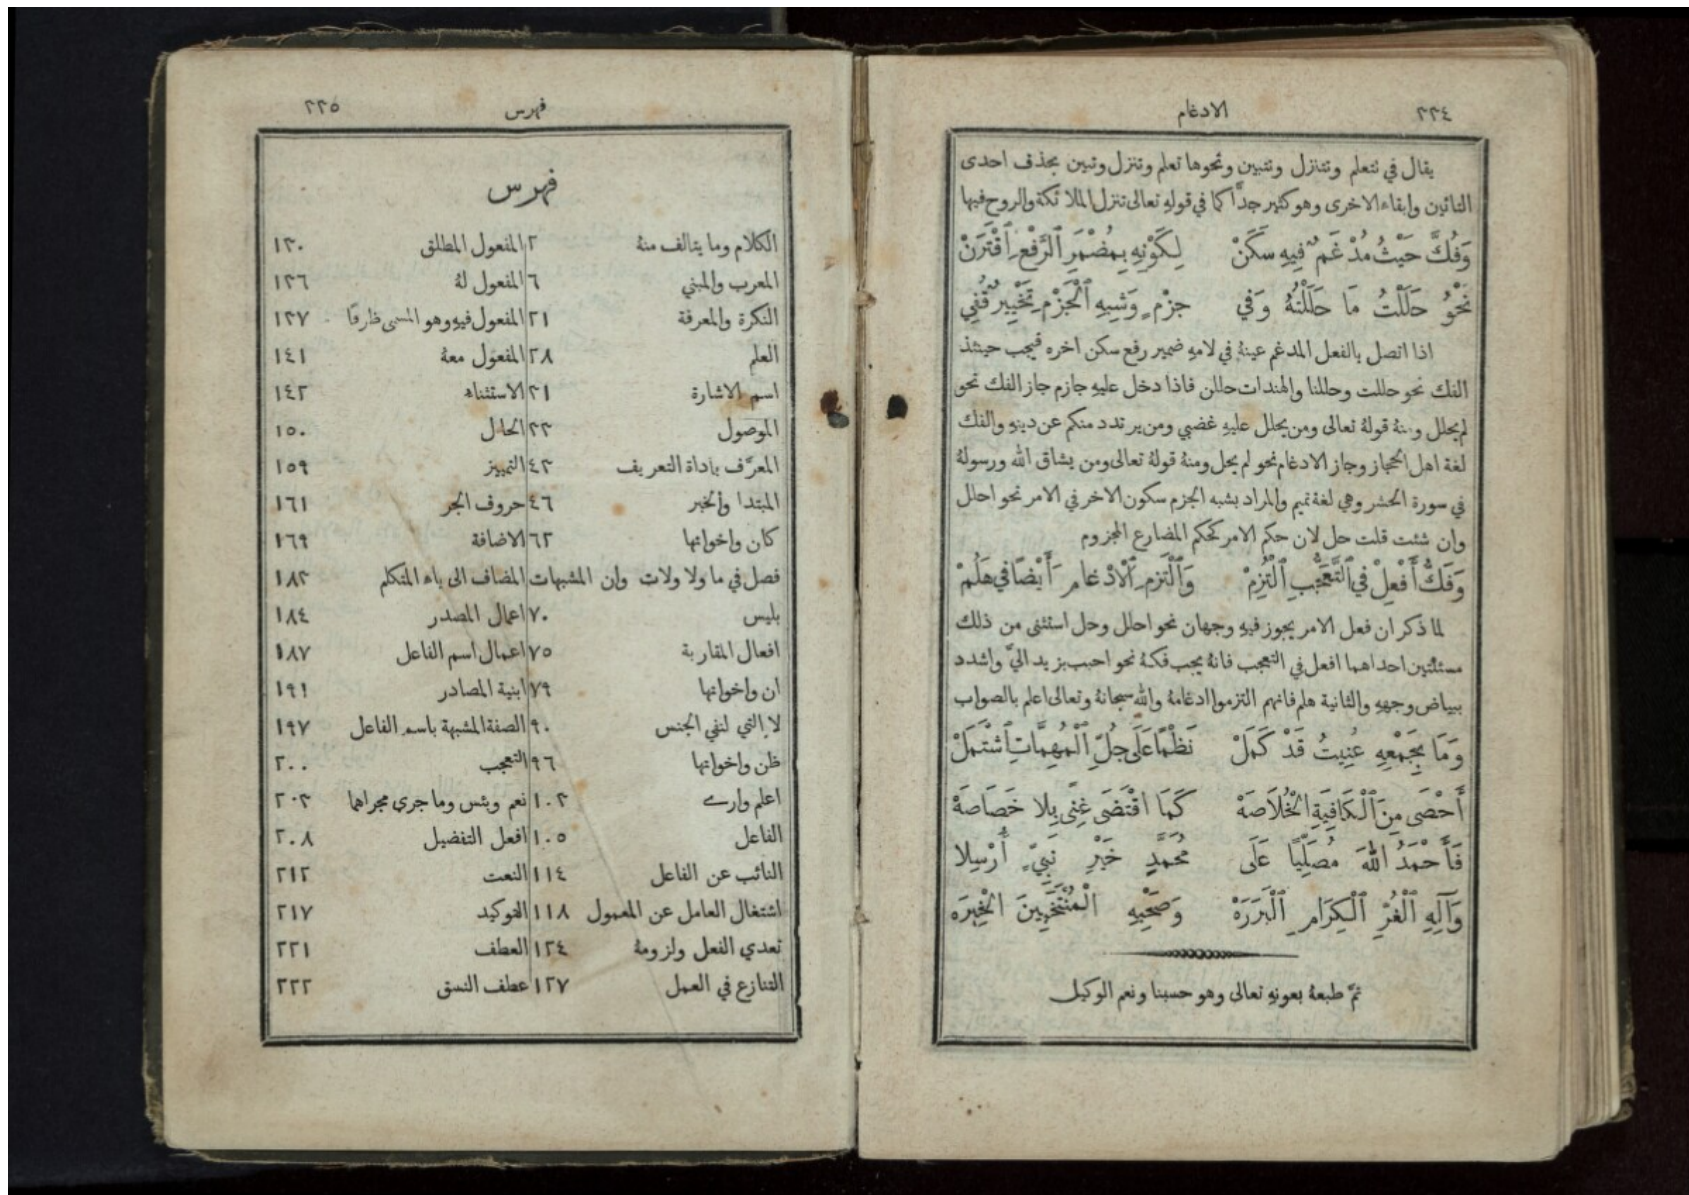 ٢٢٤ الادغام
يقال في نتعلم ونتنزل ونتبين ونحوها تعلم وتنزل وتبين بحذف احدى
التائين وابقاء الاخرى وهو كثير جدًّا كما في قولهِ تعالى تنزل الملائكة والروح فيها
وَفُكَّ حَيْثُ مُدْغَمٌ فِيهِ سَكَنْ لِكَوْنِهِ بِمُضْمَرِ ٱلرَّفْعِ ٱقْتَرَنْ
نَحْوُ حَلَلْتُ مَا حَلَلْتُهُ وَفي جَزْمٍ وَشِبْهِ ٱلْجَزْمِ تَخْيِيرٌ قُفِي
اذا اتصل بالفعل المدغم عينهُ في لامهِ ضمير رفع سكن اخره فيجب حينئذ
الفك نحو حللت وحللنا والهندات حللن فاذا دخل عليهِ جازم جاز الفك نحو
لم يحلل ومنهُ قولهُ تعالى ومن يحلل عليهِ غضبي ومن يرتدد منكم عن دينهِ والفك
لغة اهل الحجاز وجاز الادغام نحو لم يحل ومنهُ قولهُ تعالى ومن يشاق الله ورسولهُ
في سورة الحشر وهي لغة تميم والمراد بشبه الجزم سكون الاخر في الامر نحو احلل
وان شئت قلت حل لان حكم الامر كحكم المضارع المجزوم
وَفَكُّ أَفْعِلْ في ٱلتَّعَجُّبِ ٱلْتُزِمْ وَٱلْتُزِمَ ٱلْادْغَامُ أَيْضًا في هَلُمْ
لما ذكر ان فعل الامر يجوز فيهِ وجهان نحو احلل وحل استثنى من ذلك
مسئلتين احداهما افعل في التعجب فانهُ يجب فكهُ نحو احبب بزيد اليَّ واشدد
ببياض وجههِ والثانية هلم فانهم التزموا ادغامهُ والله سبحانهُ وتعالى اعلم بالصواب
وَمَا بِجَمْعِهِ عُنِيتُ قَدْ كَمَلْ نَظْمًا عَلَى جُلِّ ٱلْمُهِمَّاتِ ٱشْتَمَلْ
أَحْصَى مِنَ ٱلْكَافِيَةِ الْخُلَاصَهْ كَمَا اقْتَضَى غِنًى بِلا خَصَاصَهْ
فَأَحْمَدُ اللهَ مُصَلِّيًا عَلَى مُحَمَّدٍ خَيْرِ نَبِيٍّ أُرْسِلا
وَآلِهِ ٱلْغُرِّ ٱلْكِرَامِ ٱلْبَرَرَهْ وَصَحْبِهِ الْمُنْتَخَبِينَ الْخِيَرَه
تمَّ طبعهُ بعونهِ تعالى وهو حسبنا ونعم الوكيل
فهرس ٢٢٥
فهرس
الكلام وما يتالف منهُ ٢ المفعول المطلق ١٣٠
المعرب والمبني ٦ المفعول لهُ ١٣٦
النكرة والمعرفة ٢١ المفعول فيهِ وهو المسمى ظرفًا ١٣٧
العلم ٢٨ المفعول معهُ ١٤١
اسم الاشارة ٣١ الاستثناء ١٤٣
الموصول ٣٣ الحال ١٥٠
المعرَّف باداة التعريف ٤٣ التمييز ١٥٩
المبتدا والخبر ٤٦ حروف الجر ١٦١
كان واخواتها ٦٢ الاضافة ١٦٩
فصل في ما ولا ولات وان المشبهات المضاف الى ياء المتكلم ١٨٣
بليس ٧٠ اعمال المصدر ١٨٤
افعال المقاربة ٧٥ اعمال اسم الفاعل ١٨٧
ان واخواتها ٧٩ ابنية المصادر ١٩١
لا التي لنفي الجنس ٩٠ الصفة المشبهة باسم الفاعل ١٩٧
ظن واخواتها ٩٦ التعجب ٢٠٠
اعلم وارے ١٠٣ نعم وبئس وما جرى مجراهما ٢٠٣
الفاعل ١٠٥ افعل التفضيل ٢٠٨
النائب عن الفاعل ١١٤ النعت ٢١٢
اشتغال العامل عن المعمول ١١٨ التوكيد ٢١٧
تعدي الفعل ولزومهُ ١٢٤ العطف ٢٢١
التنازع في العمل ١٢٧ عطف النسق ٢٢٢